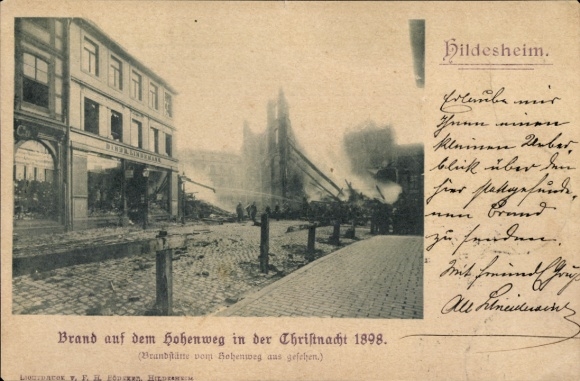 Hildesheim.
Erlaube mir
Ihnen einen
kleinen Ueber-
blick über den
hier stattgefunde-
nen Brand
zu senden.
Mit freundl. Gruß
Brand auf dem Hohenweg in der Christnacht 1898.
(Brandstätte vom Hohenweg aus gesehen.)
Lichtdruck v. F. H. Pödeker, Hildesheim